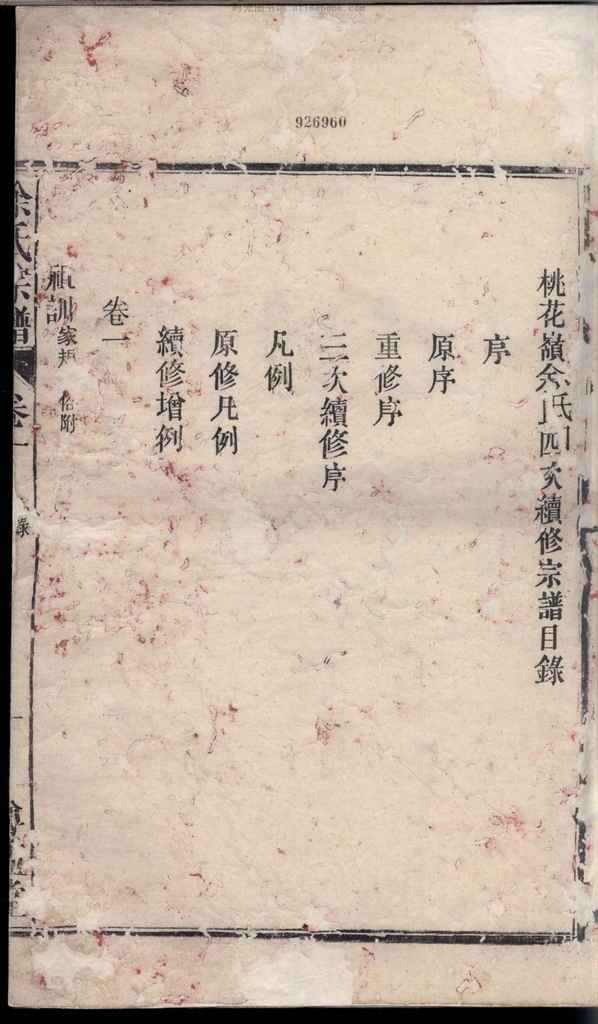 926960
桃花嶺余氏四次續修宗譜目錄
序
原序
重修序
三次續修序
凡例
原修凡例
續修增例
卷一
祖訓家規 俗附
余氏宗譜
卷一
錄
一
堂